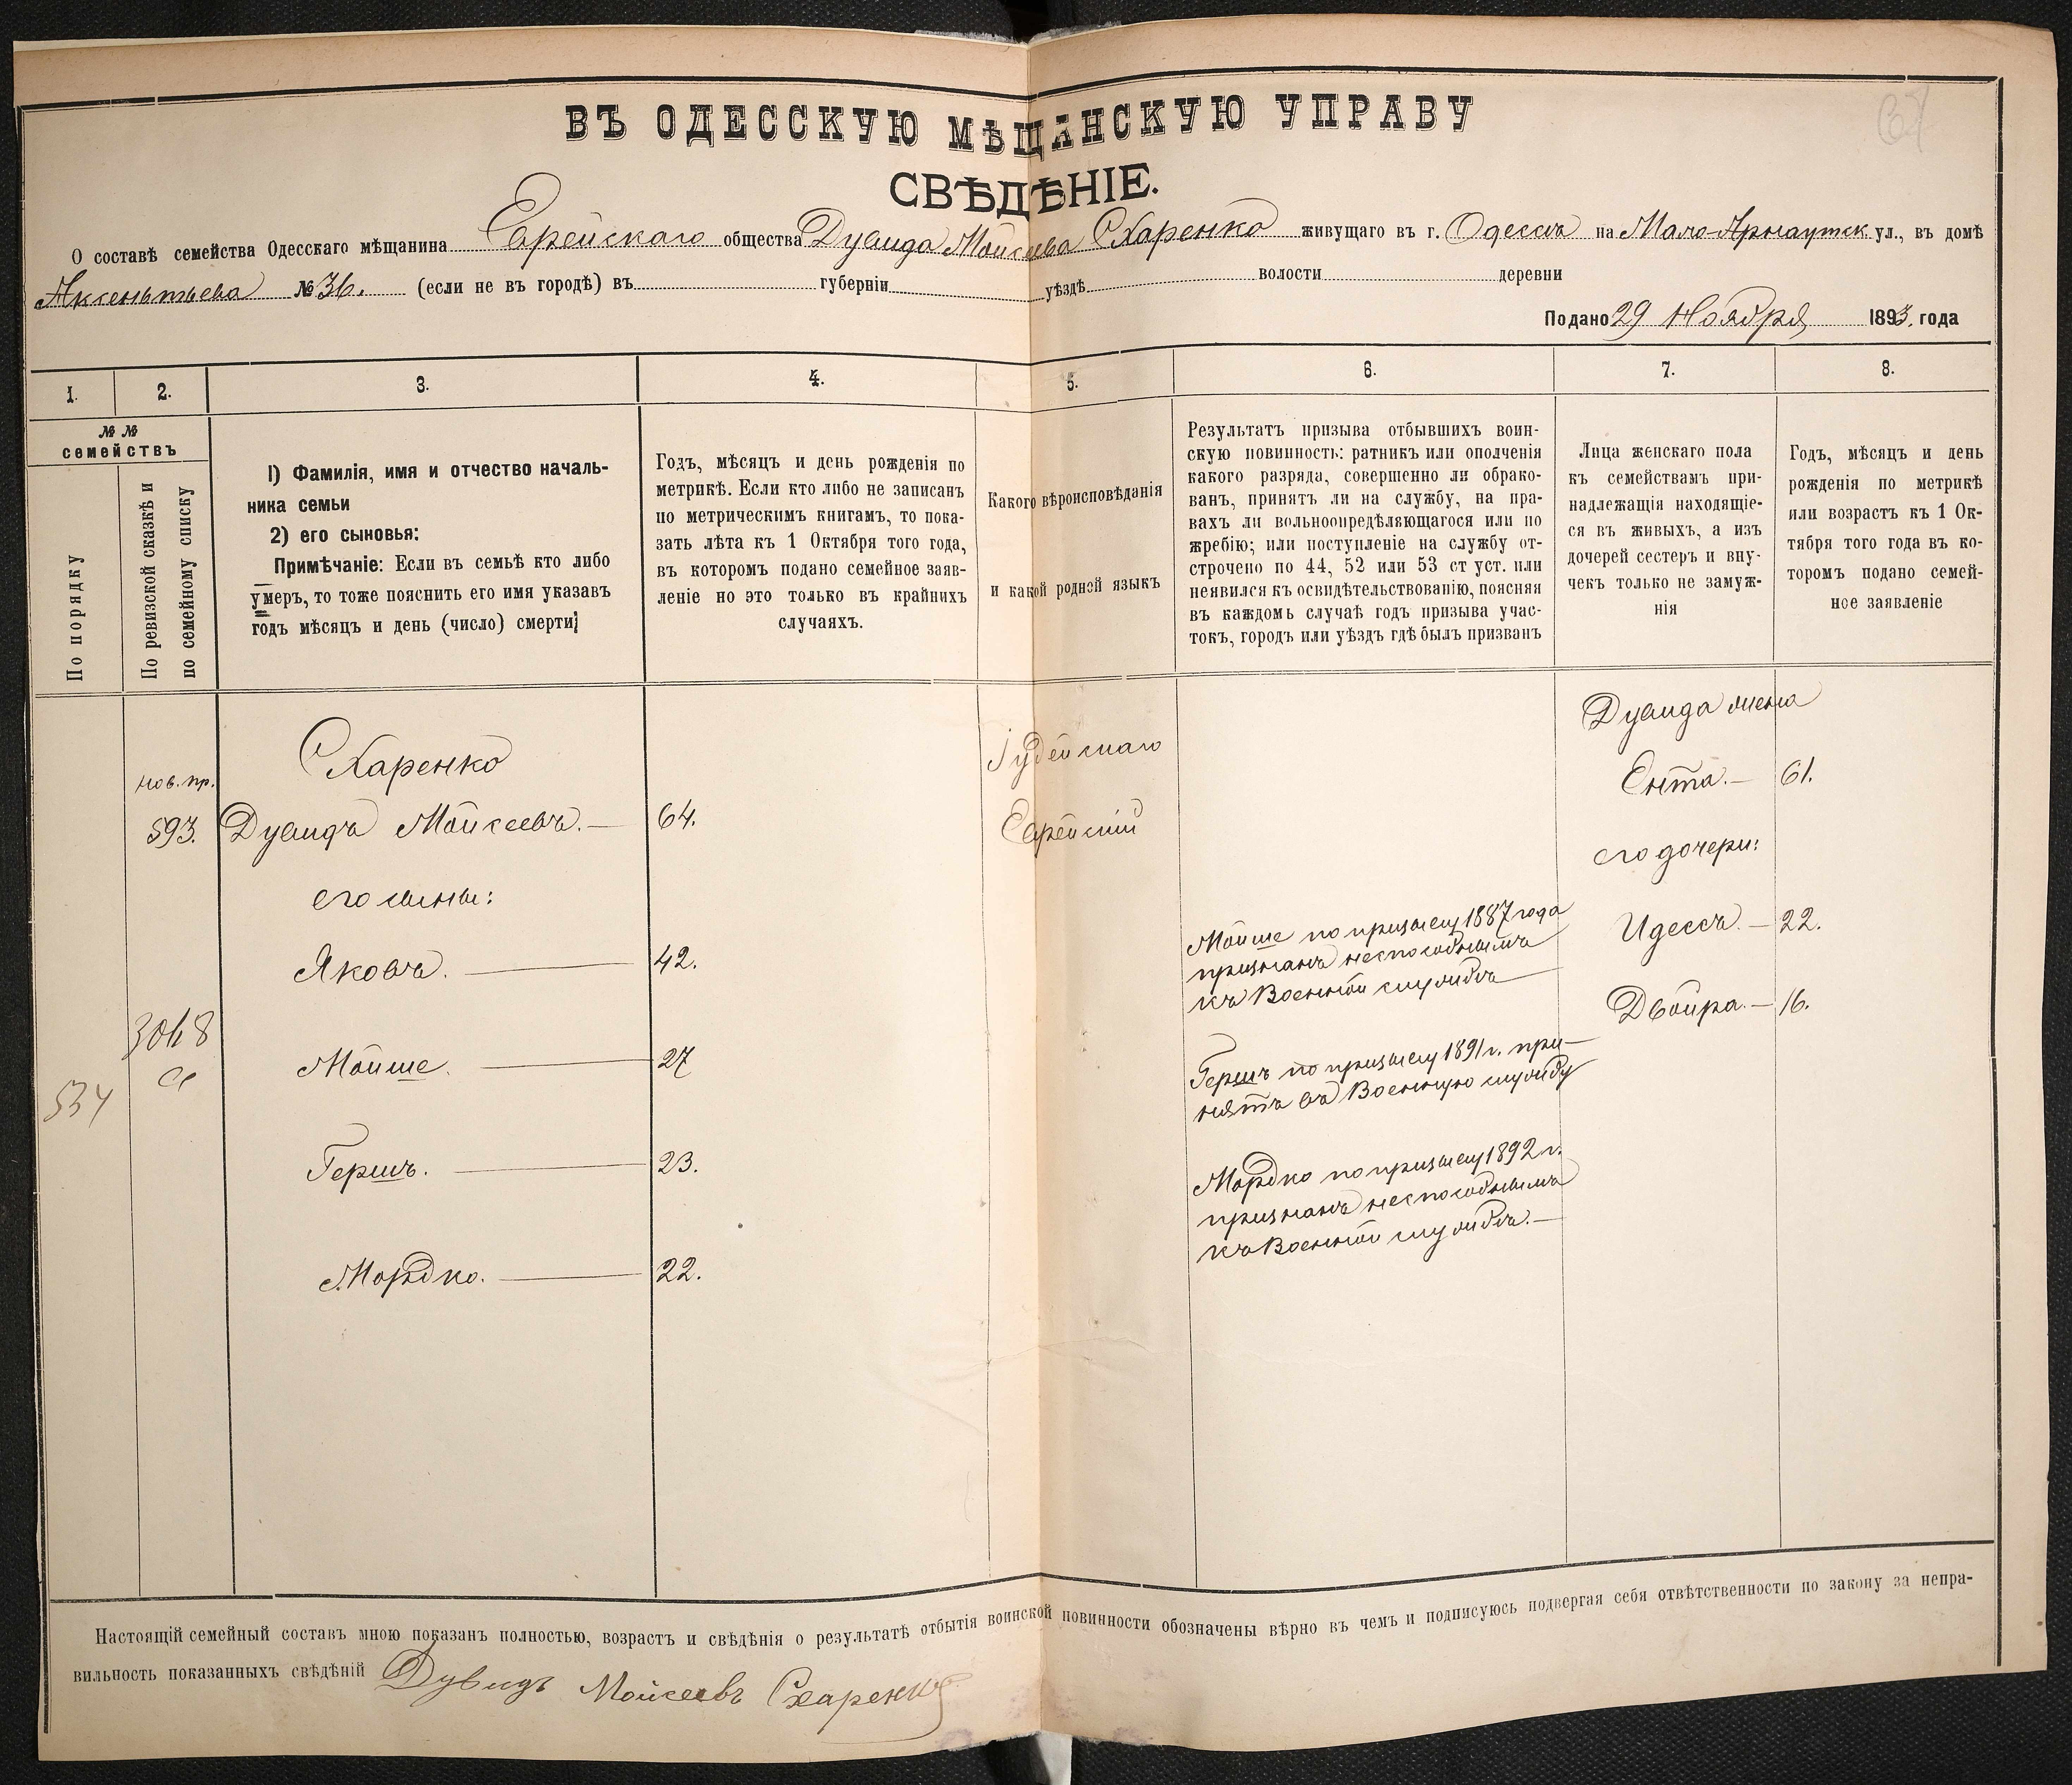 ВЪ ОДЕССКУЮ МѢЩАНСКУЮ УПРАВУ
СВѢДѢНІЕ.
О составѣ семейства Одесскаго мѣщанина Еврейскаго общества Дувида Мойсеева Схаренко живущаго въ г. Одессѣ на Мало-Арнаутск. ул., въ домѣ
Аксентьева № 36. (если не въ городѣ) въ губерніи уѣздѣ волости деревни
Подано 29 Ноября 1893. года
1. 2. 3. 4. 5. 6. 7. 8.
№ №
семействъ
По порядку
По ревизской сказкѣ и
по семейному списку
1) Фамилія, имя и отчество началь-
ника семьи
2) его сыновья:
Примѣчаніе: Если въ семьѣ кто либо
умеръ, то тоже пояснить его имя указавъ
годъ мѣсяцъ и день (число) смерти;
Годъ, мѣсяцъ и день рожденія по
метрикѣ. Если кто либо не записанъ
по метрическимъ книгамъ, то пока-
зать лѣта къ 1 Октября того года,
въ которомъ подано семейное заяв-
леніе но это только въ крайнихъ
случаяхъ.
Какого вѣроисповѣданія
и какой родной языкъ
Результатъ призыва отбывшихъ воин-
скую повинность: ратникъ или ополченія
какого разряда, совершенно ли обрако-
ванъ, принятъ ли на службу, на пра-
вахъ ли вольноопредѣляющагося или по
жребію; или поступленіе на службу от-
строчено по 44, 52 или 53 ст уст. или
неявился къ освидѣтельствованію, поясняя
въ каждомъ случаѣ годъ призыва учас-
токъ, городъ или уѣздъ гдѣ былъ призванъ
Лица женскаго пола
къ семействамъ при-
надлежащія находящіе-
ся въ живыхъ, а изъ
дочерей сестеръ и вну-
чекъ только не замуж-
нія
Годъ, мѣсяцъ и день
рожденія по метрикѣ
или возрастъ къ 1 Ок-
тября того года въ ко-
торомъ подано семей-
ное заявленіе
534
нов. пр.
593.
3068
Схаренко
Дувидъ Мойсеевъ. — 64.
его сыны:
Яковъ. — 42.
Мойше. — 27
Гершъ. — 23.
Мордко. — 22.
Іудейскаго
Еврейскій
Мойше по призыву 1887 года
признанъ неспособнымъ
къ Военной службѣ
Гершъ по призыву 1891 г. при-
нятъ въ Военную службу
Мордко по призыву 1892 г.
признанъ неспособнымъ
къ Военной службѣ. —
Дувида жена
Ента. — 61.
его дочери:
Идессъ. — 22.
Двойра. — 16.
Настоящій семейный составъ мною показанъ полностью, возрастъ и свѣдѣнія о результатѣ отбытія воинской повинности обозначены вѣрно въ чемъ и подписуюсь подвергая себя отвѣтственности по закону за непра-
вильность показанныхъ свѣдѣній Дувидъ Мойсеевъ Схаренко